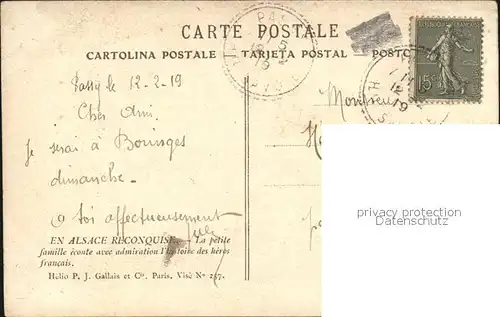 CARTE POSTALE
CARTOLINA POSTALE — TARJETA POSTAL — POSTC
Passy le 12-2-19
Cher Ami.
Je serai à Bourges
dimanche.
à toi affectueusement
Monsieur
EN ALSACE RECONQUISE. — La petite
famille écoute avec admiration l'histoire des héros
français.
Hélio P. J. Gallais et Cie. Paris. Visé No 257.
15c
privacy protection
www.ansichtskartenversand.com